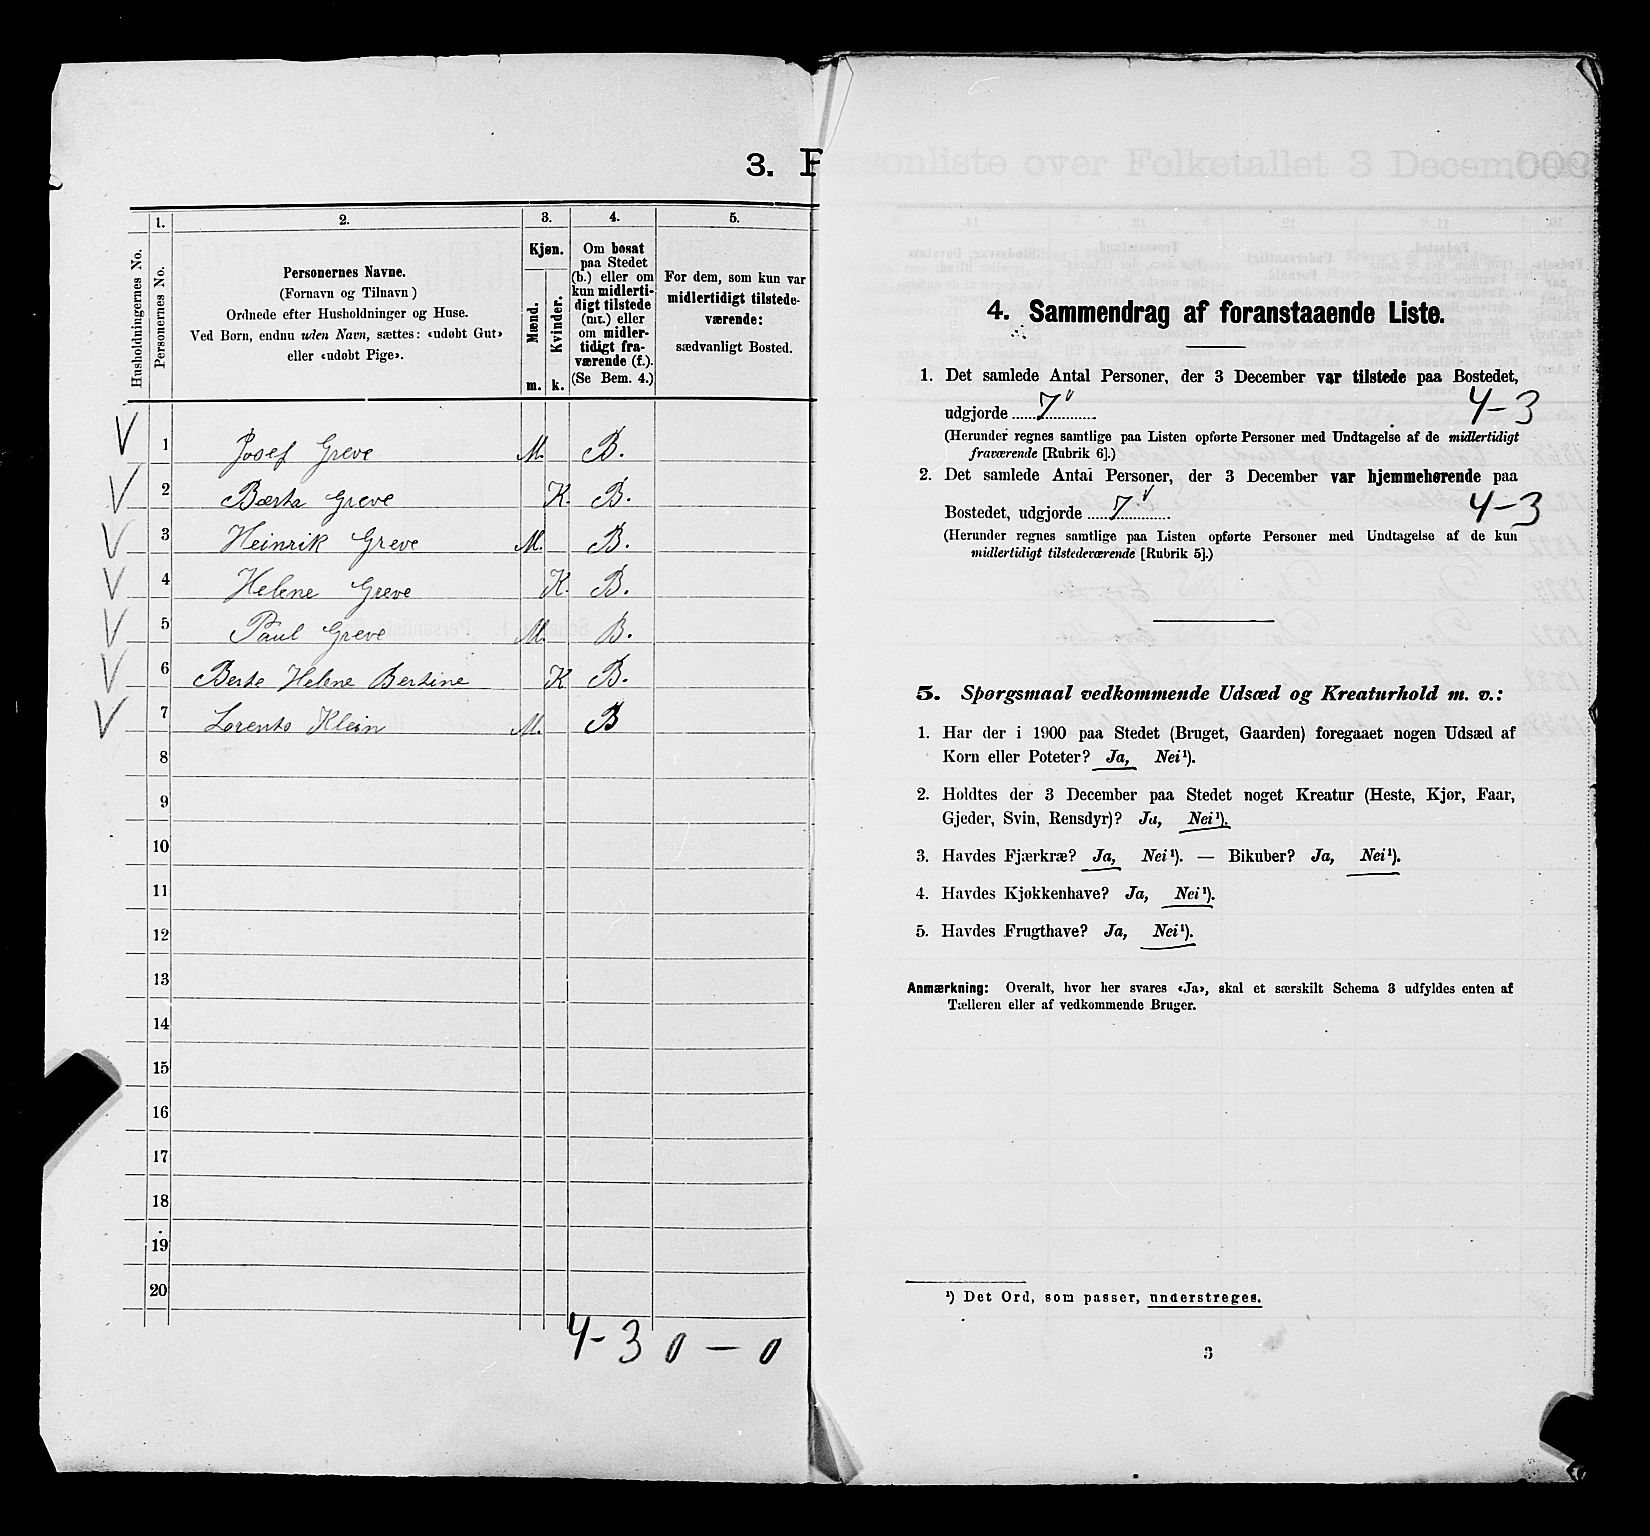 3. F
1.
2.
3.
4.
5.
Husholdningernes No.
Personernes No.
Personernes Navne.
(Fornavn og Tilnavn)
Ordnede efter Husholdninger og Huse.
Ved Børn, endnu uden Navn, sættes: «udøbt Gut»
eller «udøbt Pige».
Kjøn.
Mænd.
Kvinder.
m. k.
Om bosat
paa Stedet
(b.) eller om
kun midlerti-
digt tilstede
(mt.) eller
om midler-
tidigt fra-
værende (f.).
(Se Bem. 4.)
For dem, som kun var
midlertidigt tilstede-
værende:
sædvanligt Bosted.
1 Josef Greve M. B.
2 Bærta Greve K. B.
3 Heinrik Greve M. B.
4 Helene Greve K. B.
5 Paul Greve M. B.
6 Berte Helene Bertine K B.
7 Lorents Klein M. B
8
9
10
11
12
13
14
15
16
17
18
19
20
4-3 0 - 0
4. Sammendrag af foranstaaende Liste.
1. Det samlede Antal Personer, der 3 December var tilstede paa Bostedet,
udgjorde 7 4-3
(Herunder regnes samtlige paa Listen opførte Personer med Undtagelse af de midlertidigt
fraværende [Rubrik 6].)
2. Det samlede Antal Personer, der 3 December var hjemmehørende paa
Bostedet, udgjorde 7 4-3
(Herunder regnes samtlige paa Listen opførte Personer med Undtagelse af de kun
midlertidigt tilstedeværende [Rubrik 5].)
5. Spørgsmaal vedkommende Udsæd og Kreaturhold m. v.:
1. Har der i 1900 paa Stedet (Bruget, Gaarden) foregaaet nogen Udsæd af
Korn eller Poteter? Ja, Nei¹).
2. Holdtes der 3 December paa Stedet noget Kreatur (Heste, Kjør, Faar,
Gjeder, Svin, Rensdyr)? Ja, Nei¹).
3. Havdes Fjærkræ? Ja, Nei¹). — Bikuber? Ja, Nei¹).
4. Havdes Kjøkkenhave? Ja, Nei¹).
5. Havdes Frugthave? Ja, Nei¹).
Anmærkning: Overalt, hvor her svares «Ja», skal et særskilt Schema 3 udfyldes enten af
Tælleren eller af vedkommende Bruger.
¹) Det Ord, som passer, understreges.
3